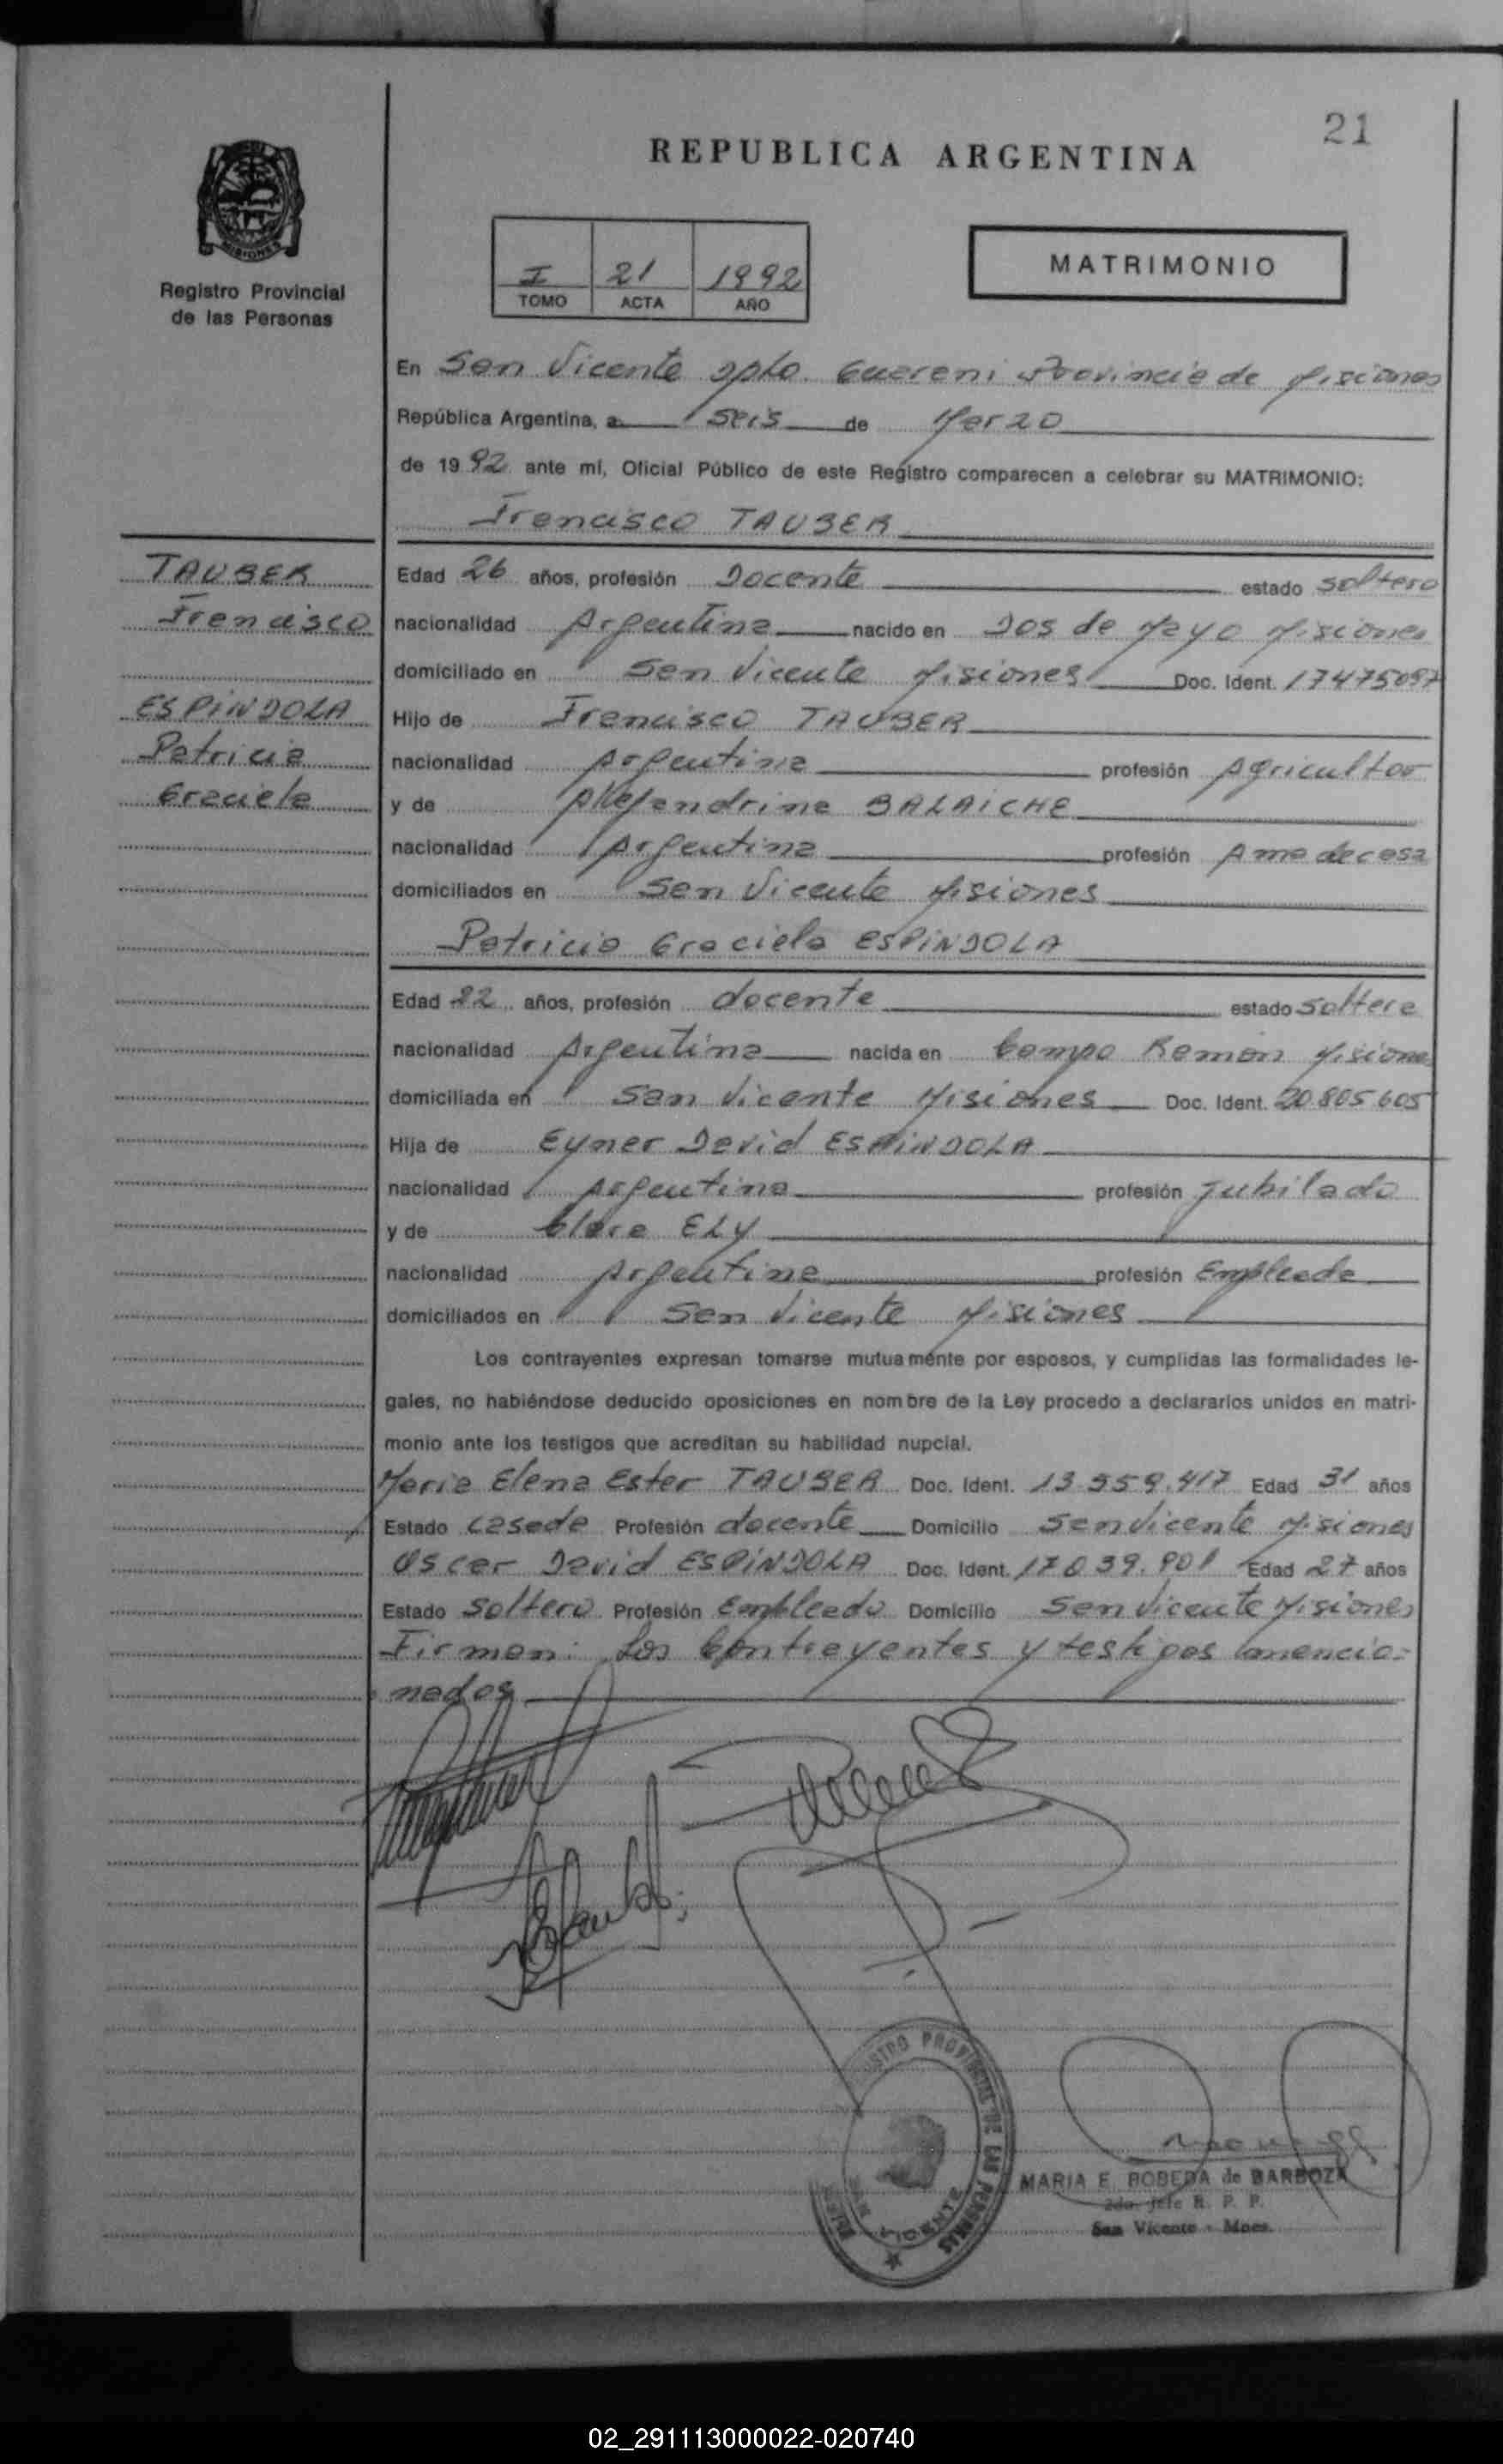 21
REPUBLICA ARGENTINA
MISIONES
Registro Provincial
de las Personas
I 21 1992
TOMO ACTA AÑO
MATRIMONIO
En San Vicente Dpto. Guarani Provincia de Misiones
República Argentina, a seis de Marzo
de 1992 ante mí, Oficial Público de este Registro comparecen a celebrar su MATRIMONIO:
Francisco TAUBER
TAUBER
Francisco
ESPINDOLA
Patricia
Graciela
Edad 26 años, profesión Docente estado soltero
nacionalidad Argentina nacido en Dos de Mayo Misiones
domiciliado en San Vicente Misiones Doc. Ident. 17475097
Hijo de Francisco TAUBER
nacionalidad Argentina profesión Agricultor
y de Alejandrina BALAICHE
nacionalidad Argentina profesión Ama de casa
domiciliados en San Vicente Misiones
Patricia Graciela ESPINDOLA
Edad 22 años, profesión docente estado soltera
nacionalidad Argentina nacida en Campo Ramon Misiones
domiciliada en San Vicente Misiones Doc. Ident. 20.805.605
Hija de Eyner David ESPINDOLA
nacionalidad Argentina profesión Jubilado
y de Clara ELY
nacionalidad Argentina profesión Empleada
domiciliados en San Vicente Misiones
Los contrayentes expresan tomarse mutuamente por esposos, y cumplidas las formalidades le-
gales, no habiéndose deducido oposiciones en nombre de la Ley procedo a declararlos unidos en matri-
monio ante los testigos que acreditan su habilidad nupcial.
Maria Elena Ester TAUBER Doc. Ident. 13.559.417 Edad 31 años
Estado casada Profesión docente Domicilio San Vicente Misiones
Oscar David ESPINDOLA Doc. Ident. 17.039.901 Edad 27 años
Estado Soltero Profesión Empleado Domicilio San Vicente Misiones
Firman: Los Contrayentes y testigos mencio-
nados
REGISTRO PROVINCIAL DE LAS PERSONAS
SAN VICENTE
MARIA E. BOBEDA de BARBOZA
2da. Jefe R. P. P.
San Vicente - Mnes.
02_291113000022-020740